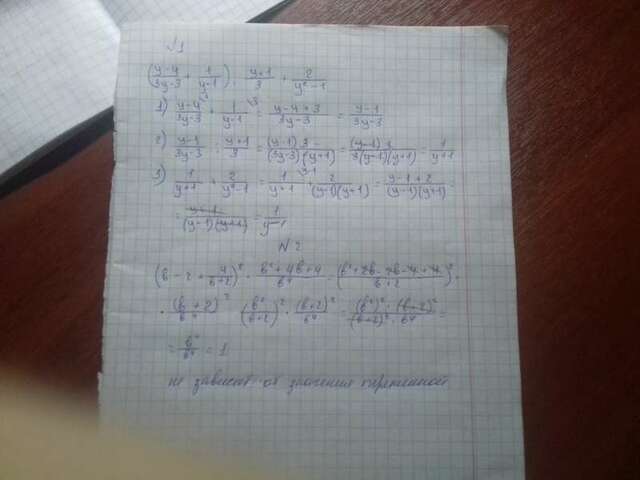 N1
((y-4)/(3y-3) + 1/(y-1)) : (y+1)/3 + 2/(y²-1)
1) (y-4)/(3y-3) + 1/(y-1) = (y-4+3)/(3y-3) = (y-1)/(3y-3)
2) (y-1)/(3y-3) : (y+1)/3 = (y-1)3/((3y-3)(y+1)) = (y-1)3/(3(y-1)(y+1)) = 1/(y+1)
3) 1/(y+1) + 2/(y²-1) = 1/(y+1) + 2/((y-1)(y+1)) = (y-1+2)/((y-1)(y+1)) =
= (y+1)/((y-1)(y+1)) = 1/(y-1)
N2
(b-2+4/(b+2))² · (b²+4b+4)/b⁴ = ((b²+2b-2b-4+4)/(b+2))² ·
· (b+2)²/b⁴ = b⁴/(b+2)² · (b+2)²/b⁴ =
= b⁴/b⁴ = 1
не зависит от значения переменной